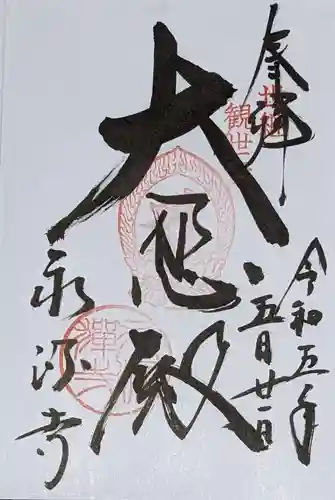 奉拝
大悲殿
令和五年
五月廿一日
永 寺
観世
禪寺